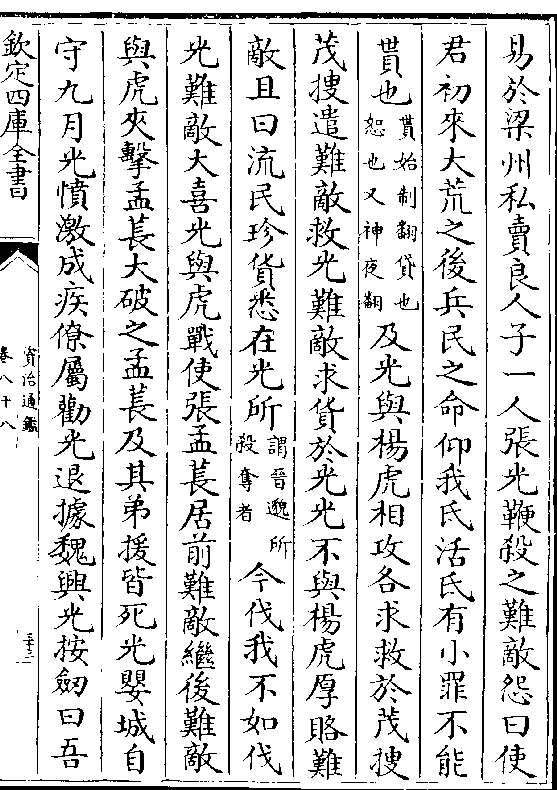 易於梁州私賣良人子一人張光鞭殺之難敵怨曰使
君初來大荒之後兵民之命仰我氐活氐有小罪不能
貰也貰始制翻貸也恕也又神夜翻及光與楊虎相攻各求救於茂搜
茂搜遣難敵救光難敵求貨於光光不與楊虎厚賂難
敵且曰流民珍貨悉在光所謂晉邈所殺奪者今伐我不如伐
光難敵大喜光與虎戰使張孟萇居前難敵繼後難敵
與虎夾擊孟萇大破之孟萇及其弟援皆死光嬰城自
守九月光憤激成疾僚屬勸光退據魏興光按劒曰吾
欽定四庫全書
資治通鑑
卷八十八
三十三